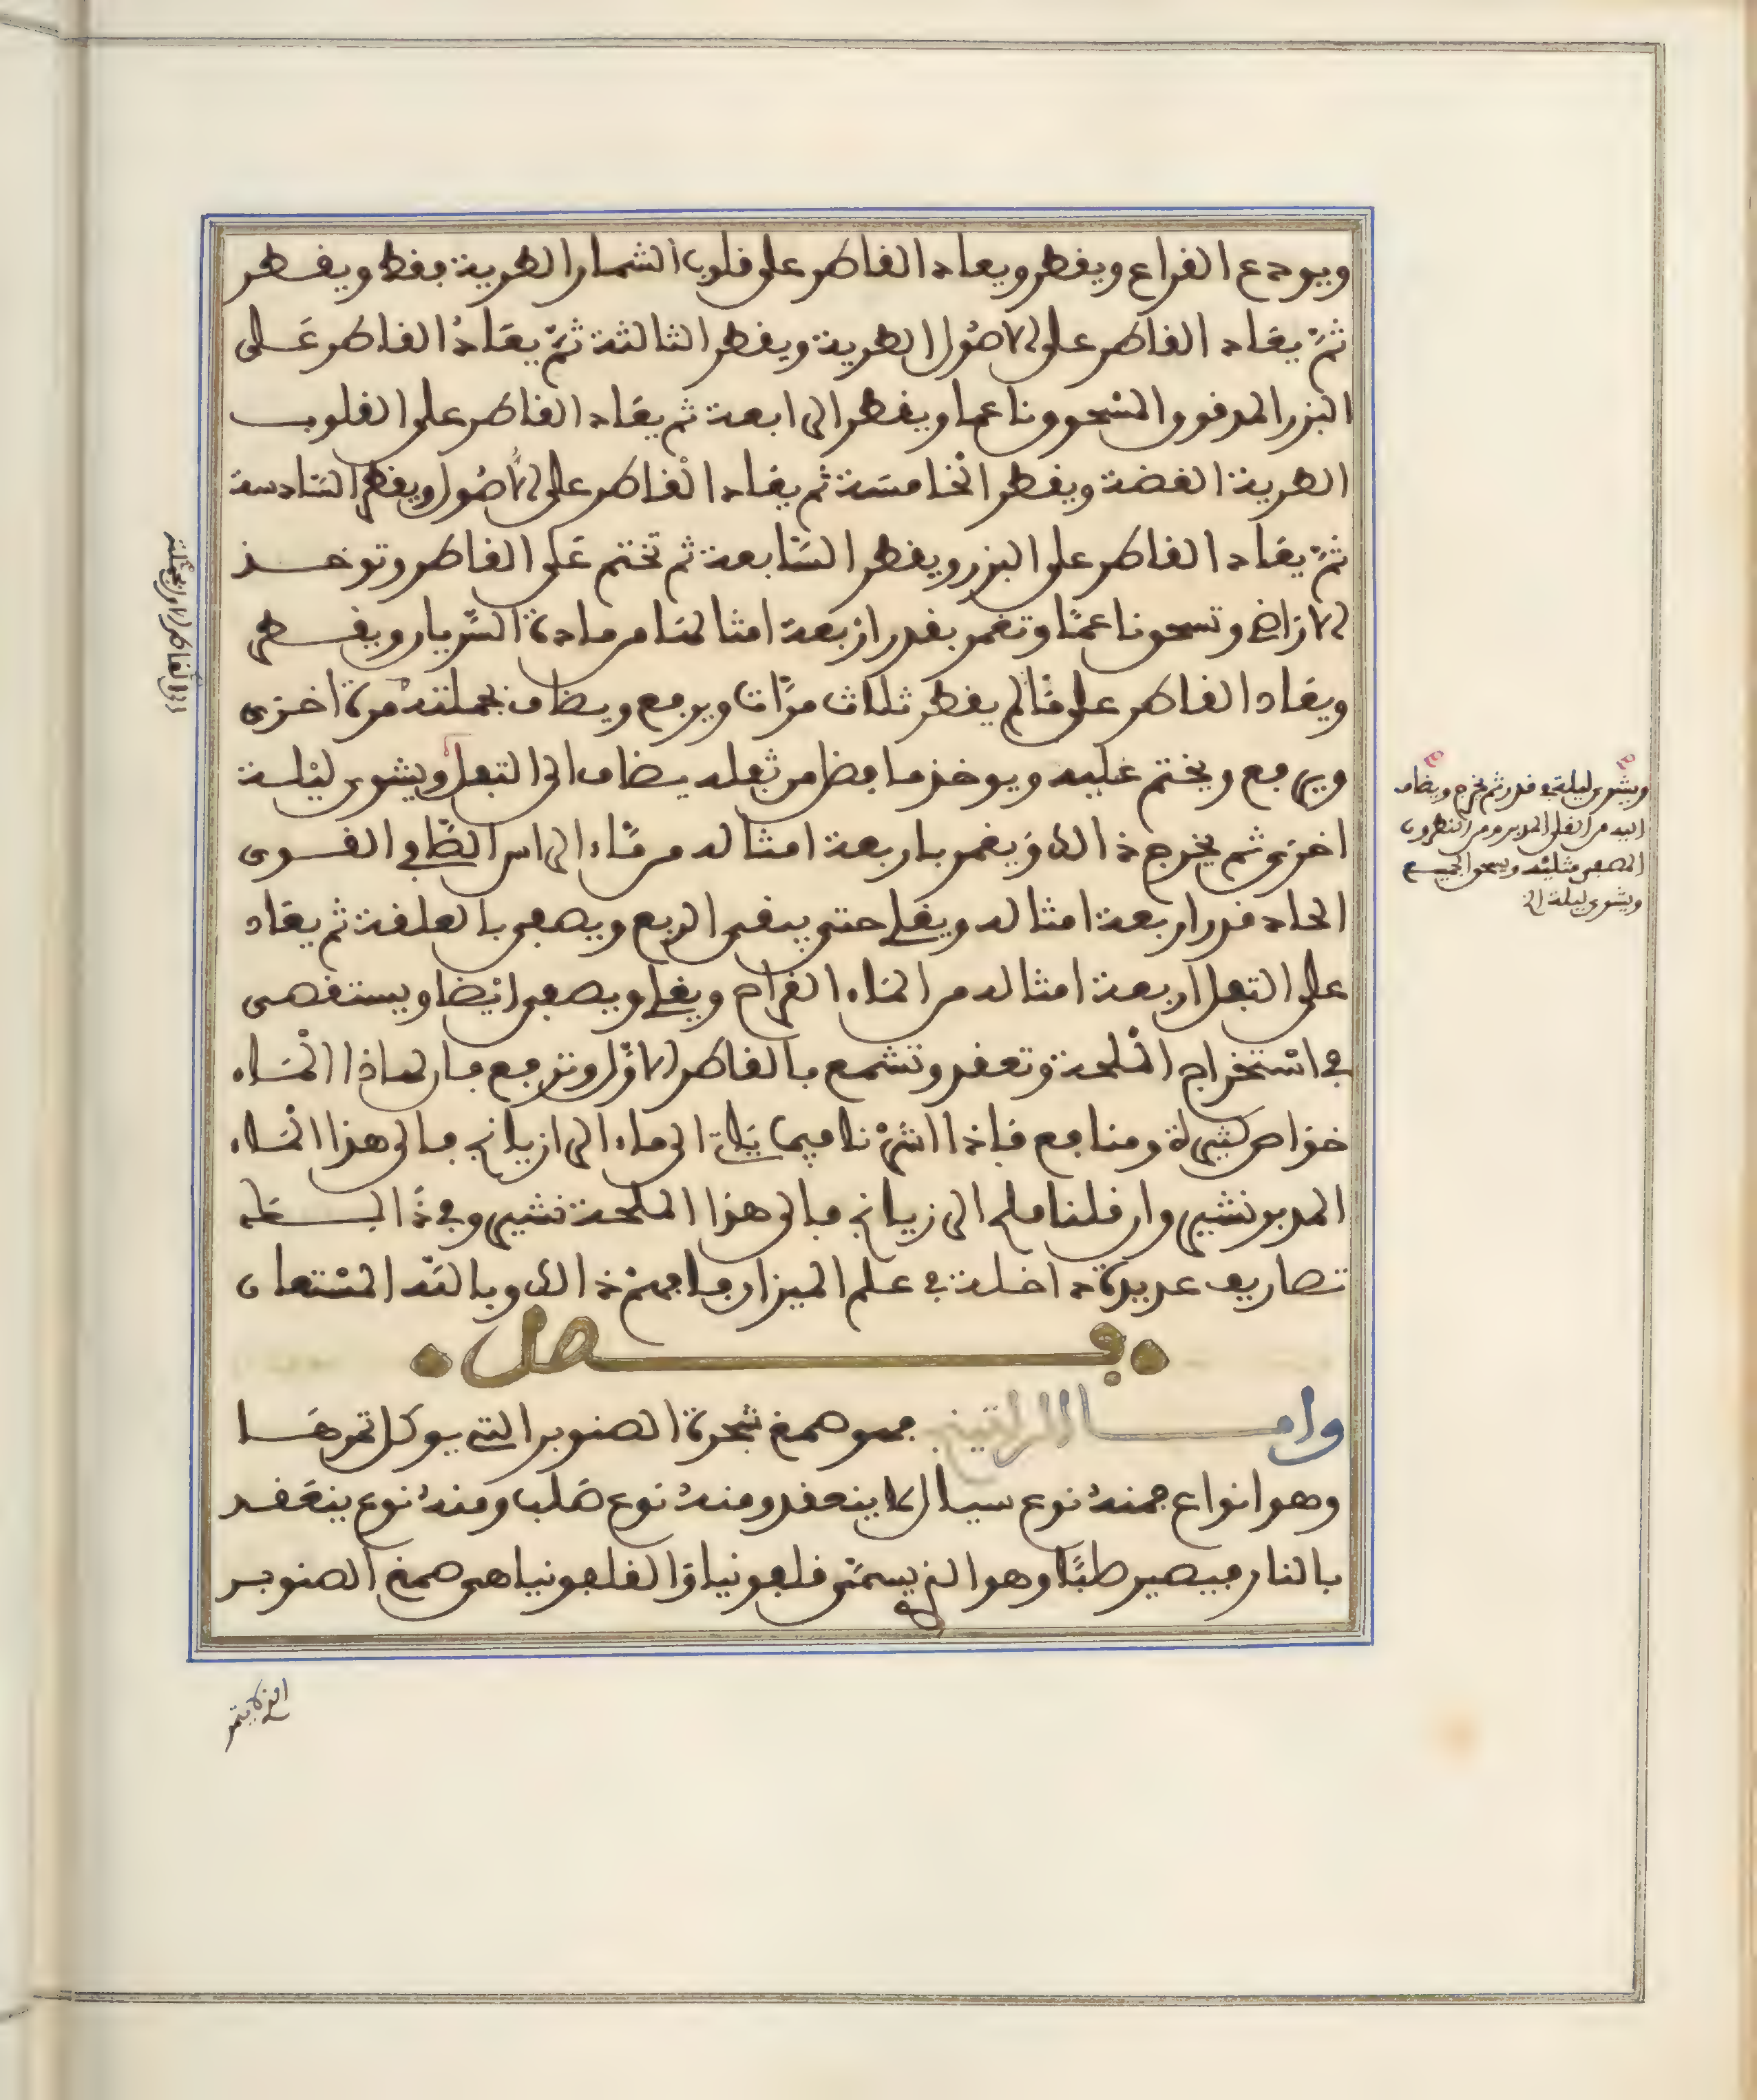 ويودع القراع ويقطر ويعاد القاطر على قلوب الشمار الطرية فقط ويقطر
ثمّ يعاد القاطر على الاصُول الطرية ويقطر الثالثة ثمّ يعَادُ القاطر عَلى
البزر المدقوق المسْحوق ناعما ويقطر الرابعة ثم يعَاد القاطر على القلوب
الطرية الغضة ويقطر الخامسَة ثم يعاد القاطر على الاصُول ويقطر السّادسة
ثمّ يعَاد القاطر على البزر ويقطر السَّابعة ثم تختم عَلى القاطر وتوخذ
الارَاضِى وتسحق ناعمًا وتغمر بقدر ارْبعة امثالهَا من مادة السَّريان ويقطر
ويعَاد القاطر على مَا لم يقطر ثلاث مرَّات ويرفع ويضاف بجملته مرة اخرَى
ويرفع ويختم عَليه ويوخذ ما فضل من ثفله يضاف الى التفل ويشوى ليْلة
اخرَى ثم يخرج ذالك وَيغمر باربعة امثاله من مَاء الراس الصَّافى القوى
الحاد قدر اربعة امثاله ويغلى حتى يبقى الربع ويصفى بالعلقة ثم يعَاد
على التفل اربعة امثاله من المَاء القراح ويغلى ويصفى ايْضا ويستقصى
فى اسْتخراج الملحة وتعقد وتشمع بالقاطر الاوَّل وترفع فان لهاذا المَاء
خوَاص كثيرة ومنافع فاذا اشرْنا فيما يَلى الى ماء الرازيانج فالى هذا المَاء
المدبر نشير وان قلنا ملح الرازيانج فالى هذا الملحة نشير وفى ذَالسـ
تصاريف عديدة داخلة فى علم الميزان فافهمْ ذالك وبالله المسْتعان
فصل
وامـا الراتينج فهو صمغ شجرة الصنوبر التى يوكل ثمرهَا
وهو انواع فمنهُ نوع سيال لا ينعقد ومنهُ نوع صَلب ومنهُ نوع ينعَقد
بالنار فيصير صلبًا وهو الذى يسمَّى قلفونيا وَالقلفونيا هى صمغ الصنوبر
ويشوى ليلة فى قدر ثم يخرج ويضاف
اليه من القلى المدبر ومن النطرون
المصفى مثليْه ويسحق الجميع
ويشوى ليلة الخ
الذى لا يثمر